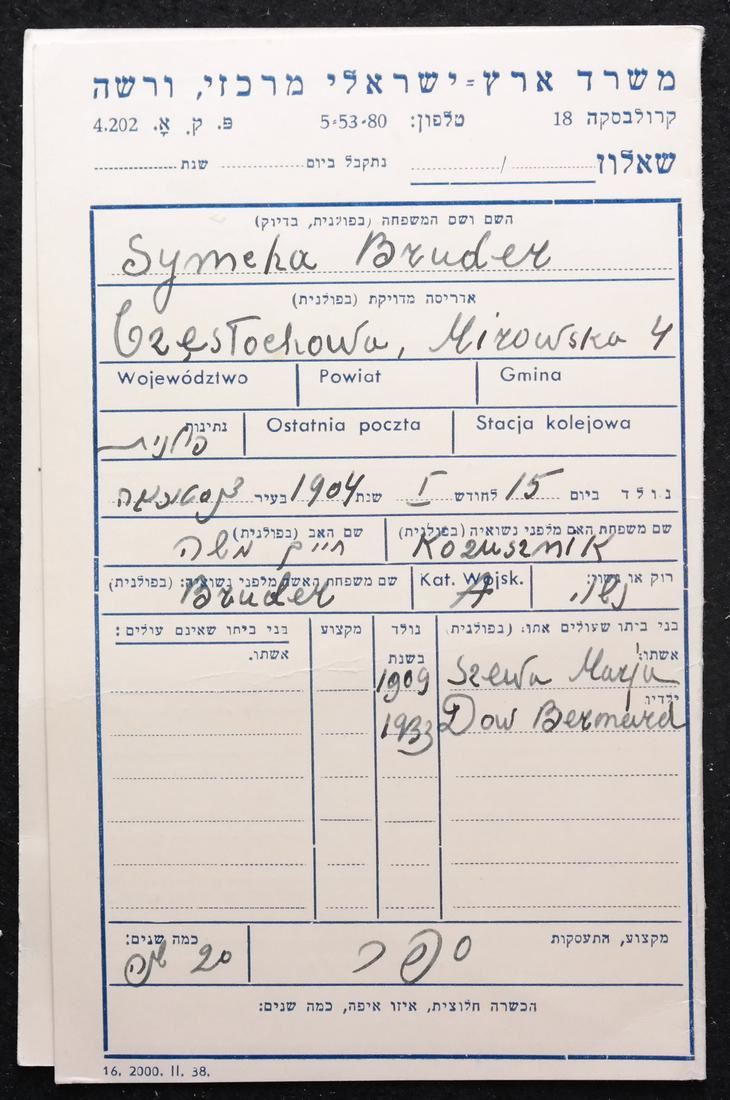 משרד ארץ=ישראלי מרכזי, ורשה
קרולבסקה 18 טלפון: 5=53=80 פ. ק. אָ. 4.202
שאלון / נתקבל ביום שנת
השם ושם המשפחה (בפולנית, בדיוק)
Symcha Bruder
אדריסה מדויקת (בפולנית)
Częstochowa, Mirowska 4
Województwo Powiat Gmina
נתינות פולנית Ostatnia poczta Stacja kolejowa
נולד ביום 15 לחודש I שנת 1904 בעיר צ'נסטוכובה
שם משפחת האם מלפני נשואיה (בפולנית) שם האב (בפולנית)
Kożusznik חיים משה
רוק או נשוי: נשוי Kat. Wojsk. A שם משפחת האשה מלפני נשואיה: (בפולנית)
Bruder
בני ביתו שעולים אתו: (בפולנית) נולד בשנת מקצוע בני ביתו שאינם עולים:
אשתו: Szewa Marja 1909 אשתו.
ילדיו Dow Bernard 1933
מקצוע, התעסקות ספר כמה שנים: 20 שנה
הכשרה חלוצית, איזו איפה, כמה שנים:
16. 2000. II. 38.